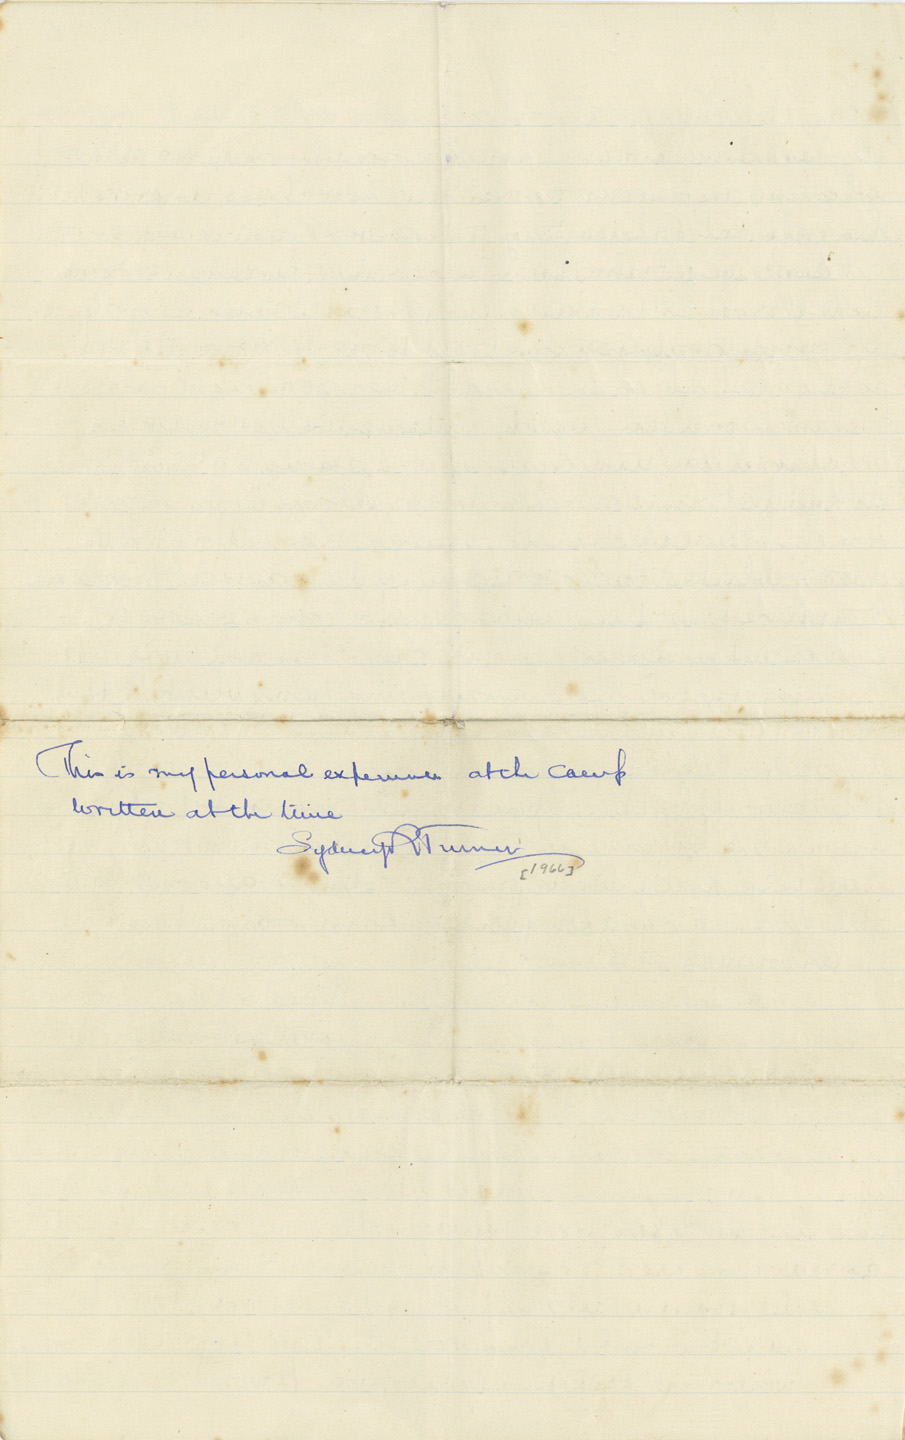 This is my personal experiences at the Camp
written at the time
Sydney Turner
[1966]